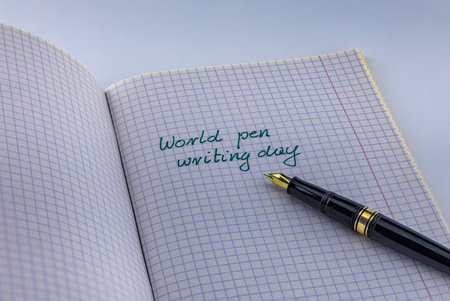 World pen
writing day